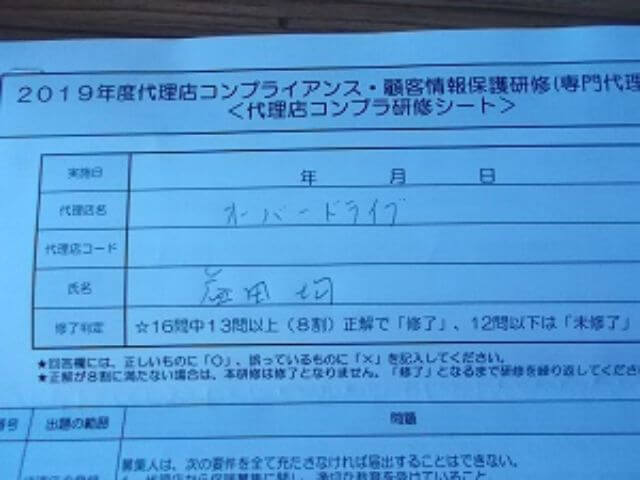 2019年度代理店コンプライアンス・顧客情報保護研修(専門代理
<代理店コンプラ研修シート>
実施日 年 月 日
代理店名 オーバードライブ
代理店コード
氏名 田
修了判定 ☆16問中13問以上(8割)正解で「修了」、12問以下は「未修了」
★回答欄には、正しいものに「○」、誤っているものに「×」を記入してください。
★正解が8割に満たない場合は、本研修は修了となりません。「修了」となるまで研修を繰り返してくださ
番号 出題の範囲 問題
募集人は、次の要件を全て充たさなければ届出することはできない。